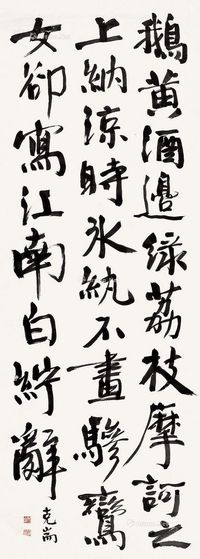 鵝黃酒邊綠荔枝摩訶之
上納涼時冰紈不畫驂鸞
女卻寫江南白紵辭
克耑